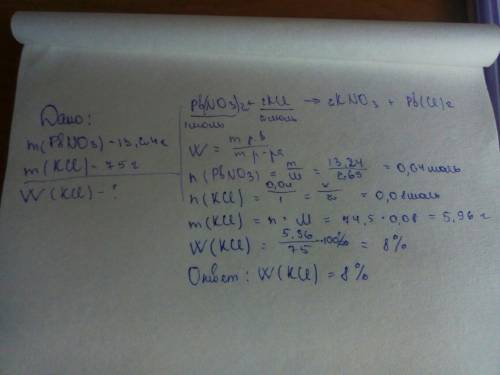 Дано:
m(PbNO3) - 13,24 г
m(KCl) - 75 г
W(KCl) - ?
Pb(NO3)2 + 2KCl → 2KNO3 + Pb(Cl)2
1моль 2моль
W = m р.в / m р-ра
n(PbNO3) = m/M = 13,24/269 = 0,04 моль
n(KCl) = 0,04/1 = x/2 = 0,08 моль
m(KCl) = n · M = 74,5 · 0,08 = 5,96 г
W(KCl) = 5,96/75 · 100% = 8%
Ответ: W(KCl) = 8%